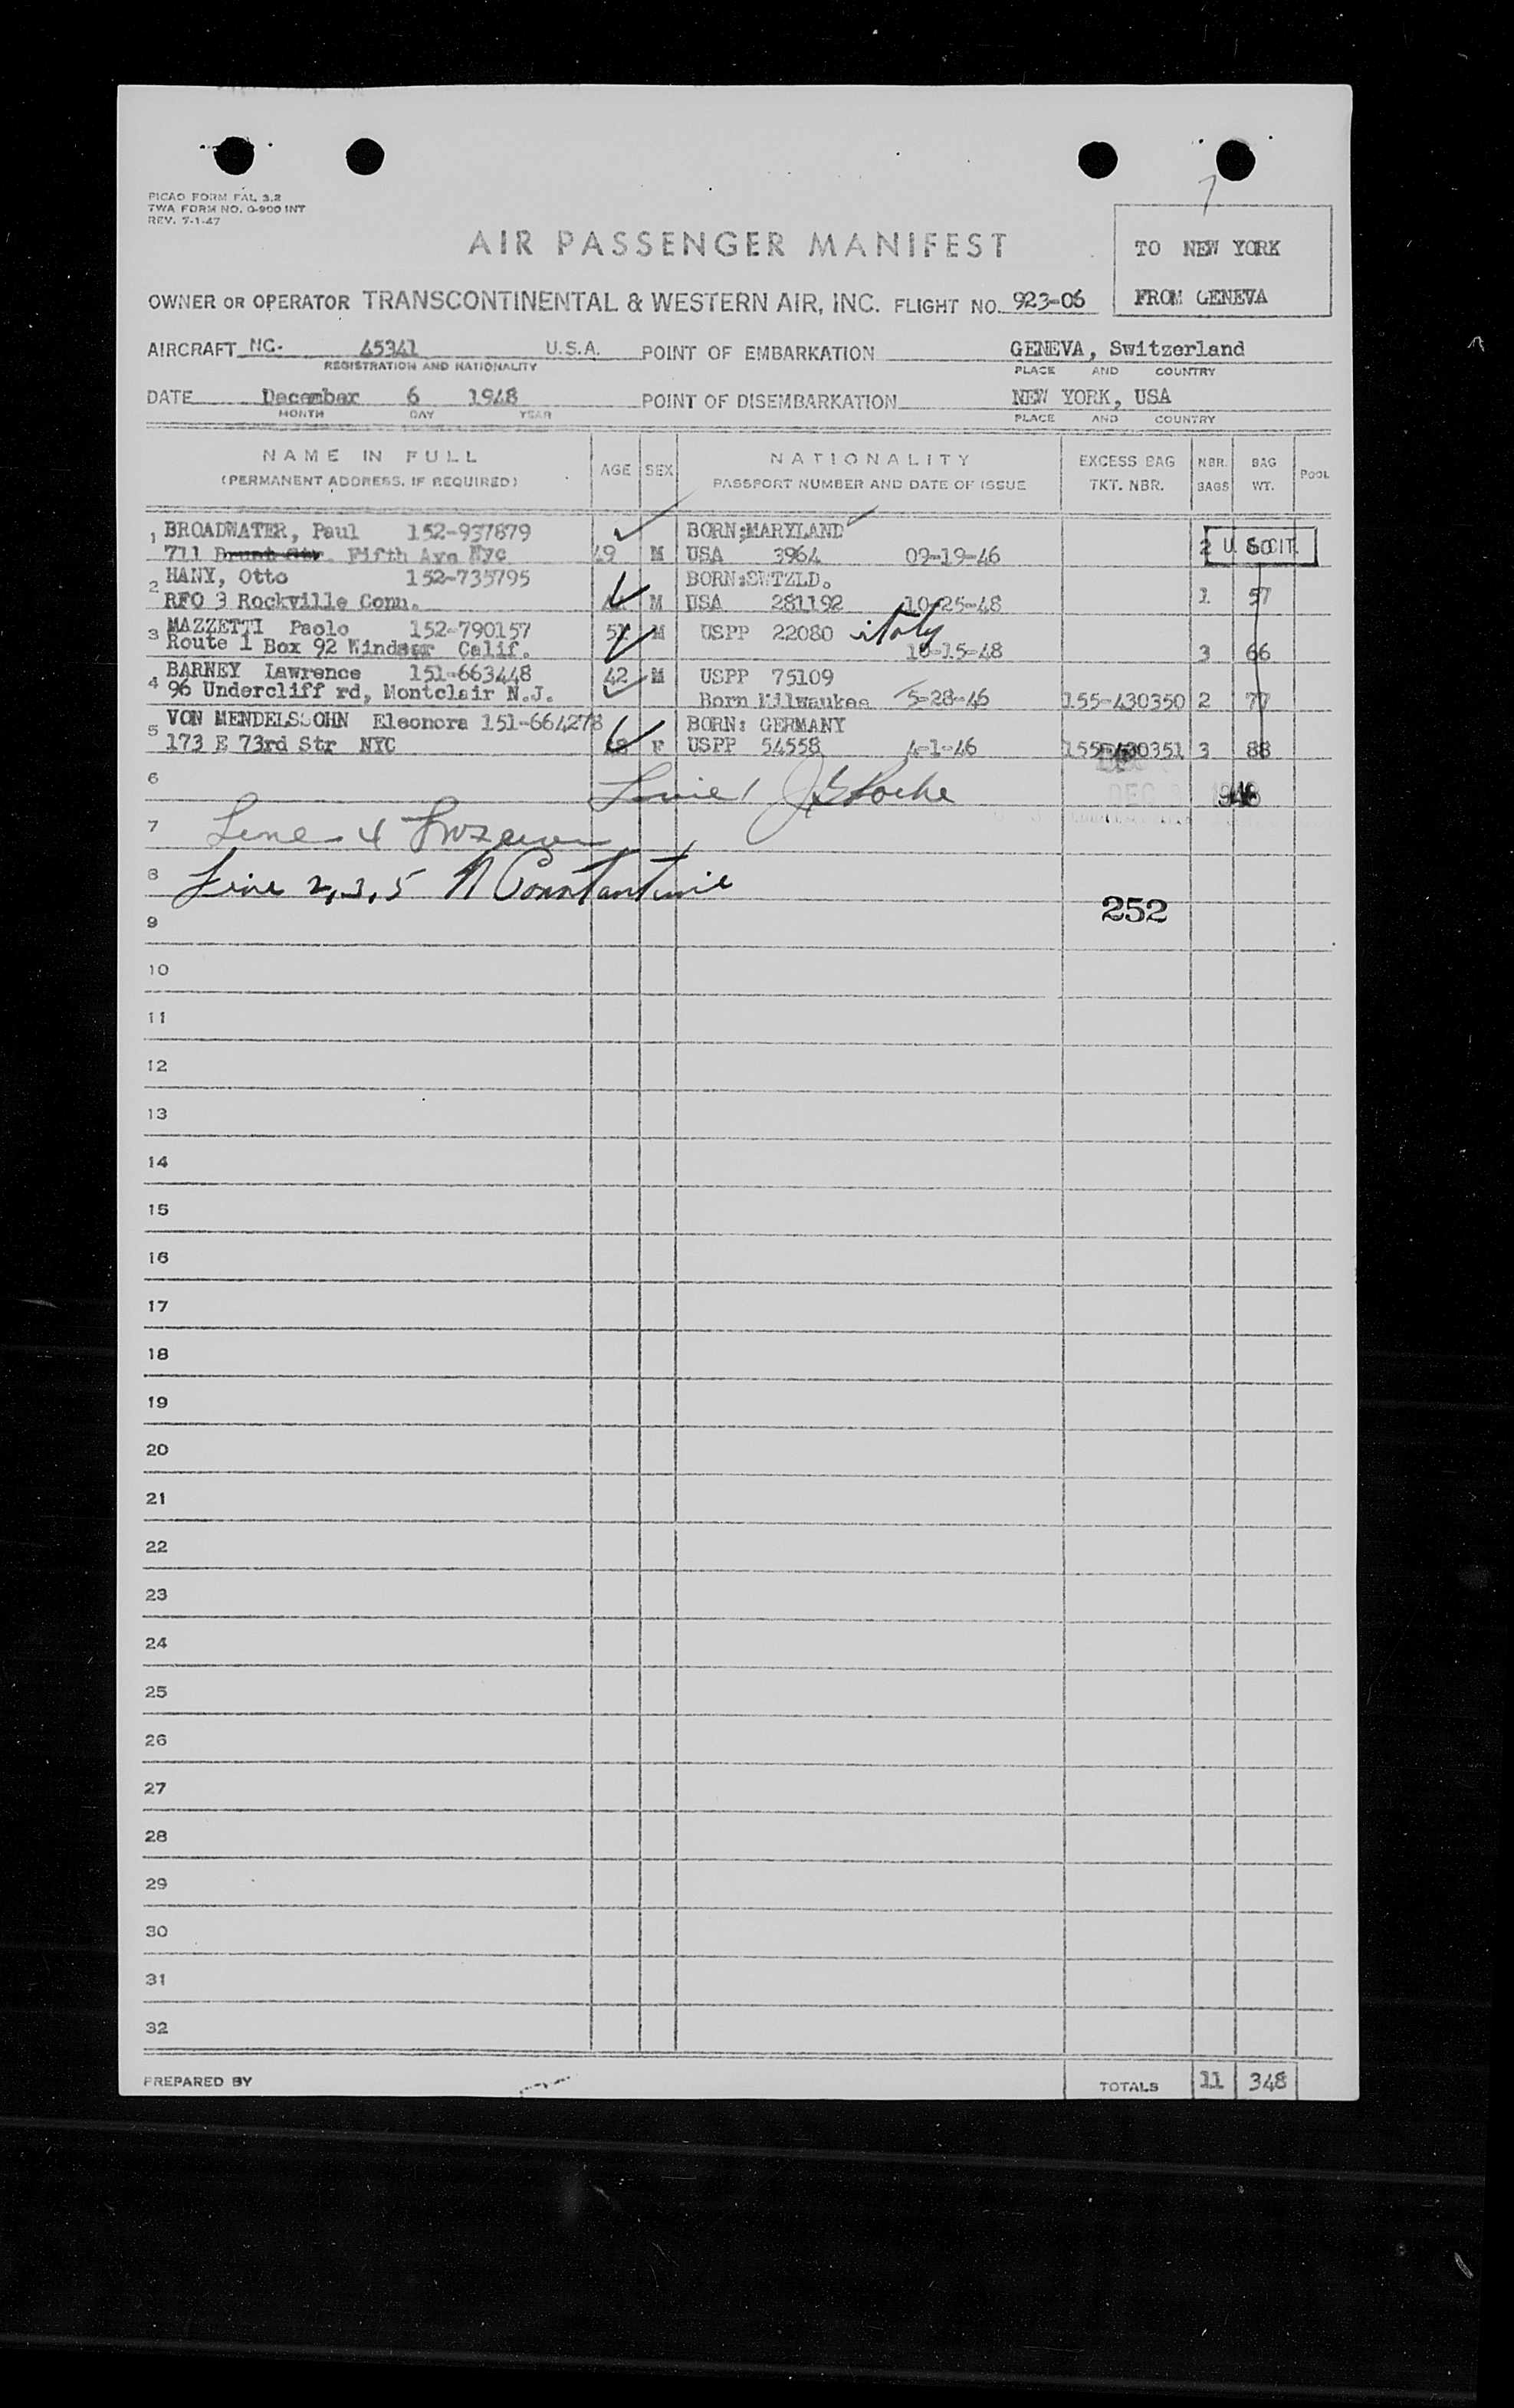 PICAO FORM FAL 3.2
TWA FORM NO. O-900 INT
REV. 7-1-47
AIR PASSENGER MANIFEST
TO NEW YORK
FROM GENEVA
OWNER OR OPERATOR TRANSCONTINENTAL & WESTERN AIR, INC. FLIGHT NO. 923-06
AIRCRAFT NC. 45341 U.S.A. POINT OF EMBARKATION GENEVA, Switzerland
REGISTRATION AND NATIONALITY PLACE AND COUNTRY
DATE December 6 1948 POINT OF DISEMBARKATION NEW YORK, USA
MONTH DAY YEAR PLACE AND COUNTRY
NAME IN FULL AGE SEX NATIONALITY EXCESS BAG NBR. BAG POOL
(PERMANENT ADDRESS, IF REQUIRED) PASSPORT NUMBER AND DATE OF ISSUE TKT. NBR. BAGS WT.
1 BROADWATER, Paul 152-937879 BORN;MARYLAND
711 Fifth Ave Nyc 49 M USA 3964 09-19-46 2 60 U. S. CIT.
2 HANY, Otto 152-735795 BORN:SWTZLD.
RFO 3 Rockville Conn. M USA 281192 10-25-48 1 57
3 MAZZETTI Paolo 152-790157 M USPP 22080 italy
Route 1 Box 92 Windsor Calif. 10-15-48 3 66
4 BARNEY Lawrence 151-663448 42 M USPP 75109
96 Undercliff rd, Montclair N.J. Born Milwaukee 5-28-46 155-430350 2 77
5 VON MENDELSSOHN Eleonora 151-664278 BORN: GERMANY
173 E 73rd Str NYC F USPP 54558 4-1-46 155-430351 3 88
6 Line 1 DEC 1948
7 Line 4
8 Line 2,3,5
9 252
10
11
12
13
14
15
16
17
18
19
20
21
22
23
24
25
26
27
28
29
30
31
32
PREPARED BY TOTALS 11 348